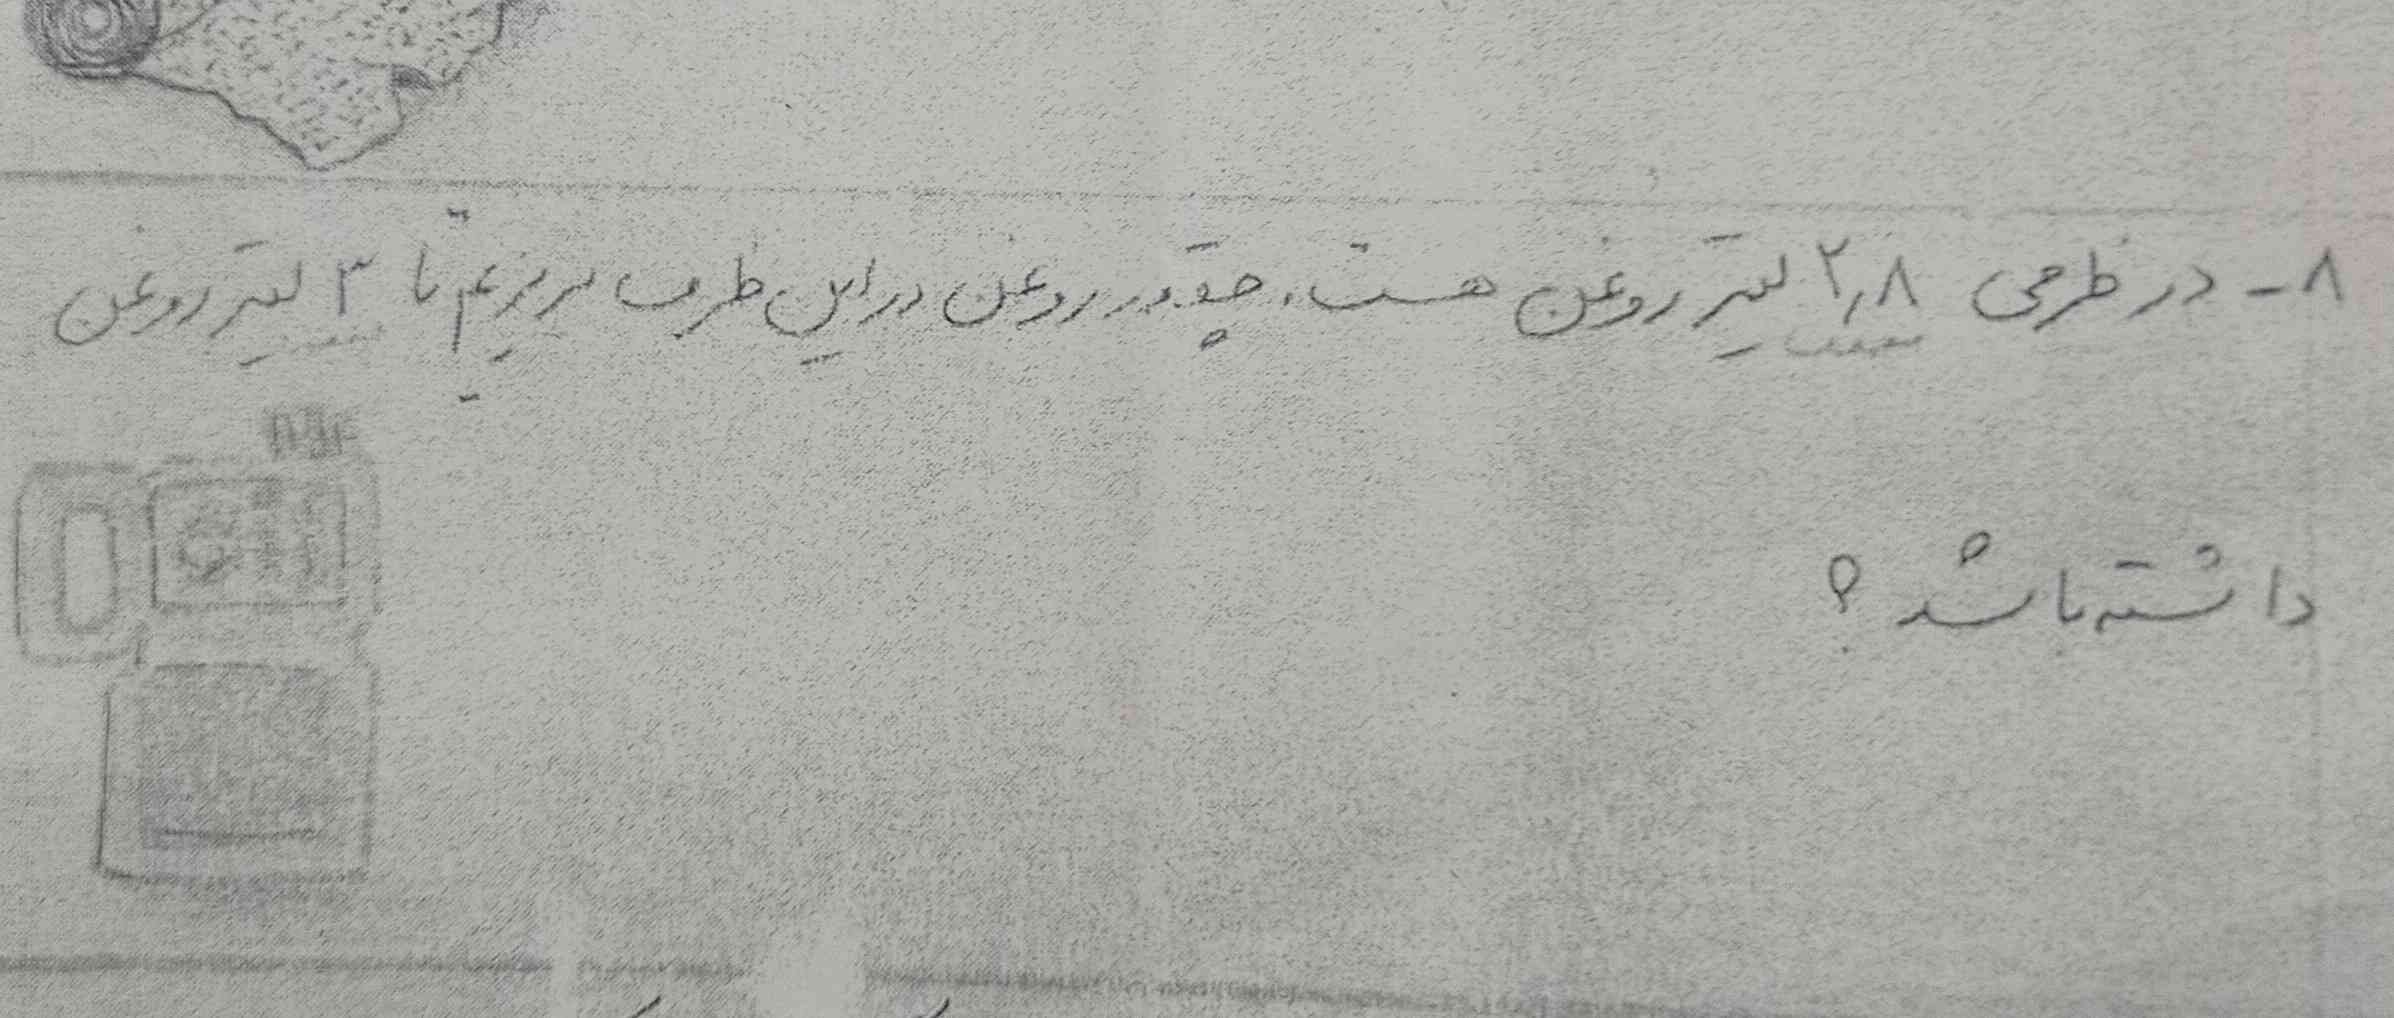 ۸- در ظرفی ۲٫۸ لیتر روغن هست، چقدر روغن در این ظرف بریزیم تا ۳ لیتر روغن
داشته باشد ؟